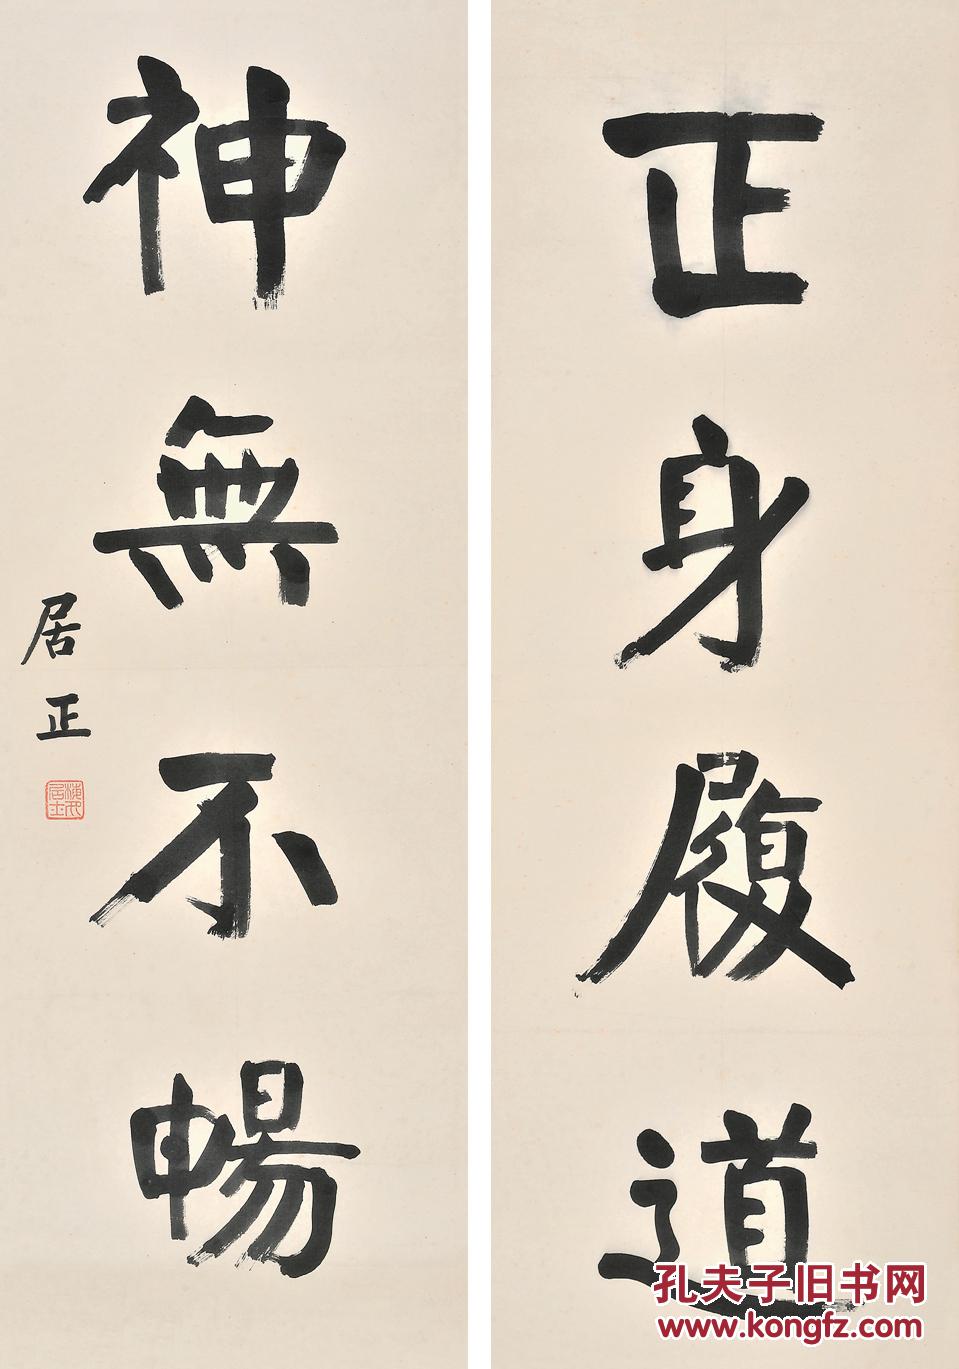 正身履道
神無不暢
居正
孔夫子旧书网
www.kongfz.com